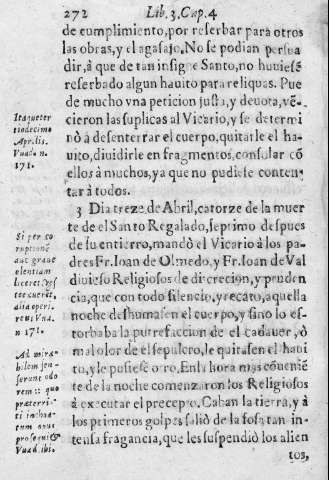 272 Lib. 3. Cap. 4
de cumplimiento, por reserbar para otros
las obras, y el agasajo. No se podian persua
dir, à que de tan insigne Santo, no huuiesẽ
reserbado algun hauito para reliquas. Pue
de mucho vna peticion justa, y deuota, vẽ-
cieron las suplicas al Vicario, y se determi
nò à desenterrar el cuerpo, quitarle el ha-
uito, diuidirle en fragmentos, consolar cõ
ellos à muchos, ya que no pudiese conten-
tar à todos.
3 Dia treze de Abril, catorze de la muer
te de el Santo Regalado, septimo despues
de su entierro, mandò el Vicario à los pa-
dres Fr. Ioan de Olmedo, y Fr. Ioan de Val
diuieso Religiosos de discrecion, y pruden
cia, que con todo silencio, y recato, aquella
noche deshumasen el cuerpo, y sino lo es-
torbaba la putrefaccion de el cadauer, ò
mal olor de el sepulcro, le quitasen el haui
to, y le pusiese otro. En la hora mas cõuenie
te de la noche comenzaron los Religiosos
à executar el precepto. Caban la tierra, y à
los primeros golpes saliò de la fosa tan in-
tensa fragancia, que les suspendiò los alien
tos,
Itaque ter
tiodecimo
Aprilis.
Vuad. n.
171.
Si per co
ruptionẽ
aut graue
olentiam
liceret
reus Vu.
n 171.
Ad mira-
bilem
odo
rem
præterri-
ti inchoa-
tum opus
Vuad. ibi.